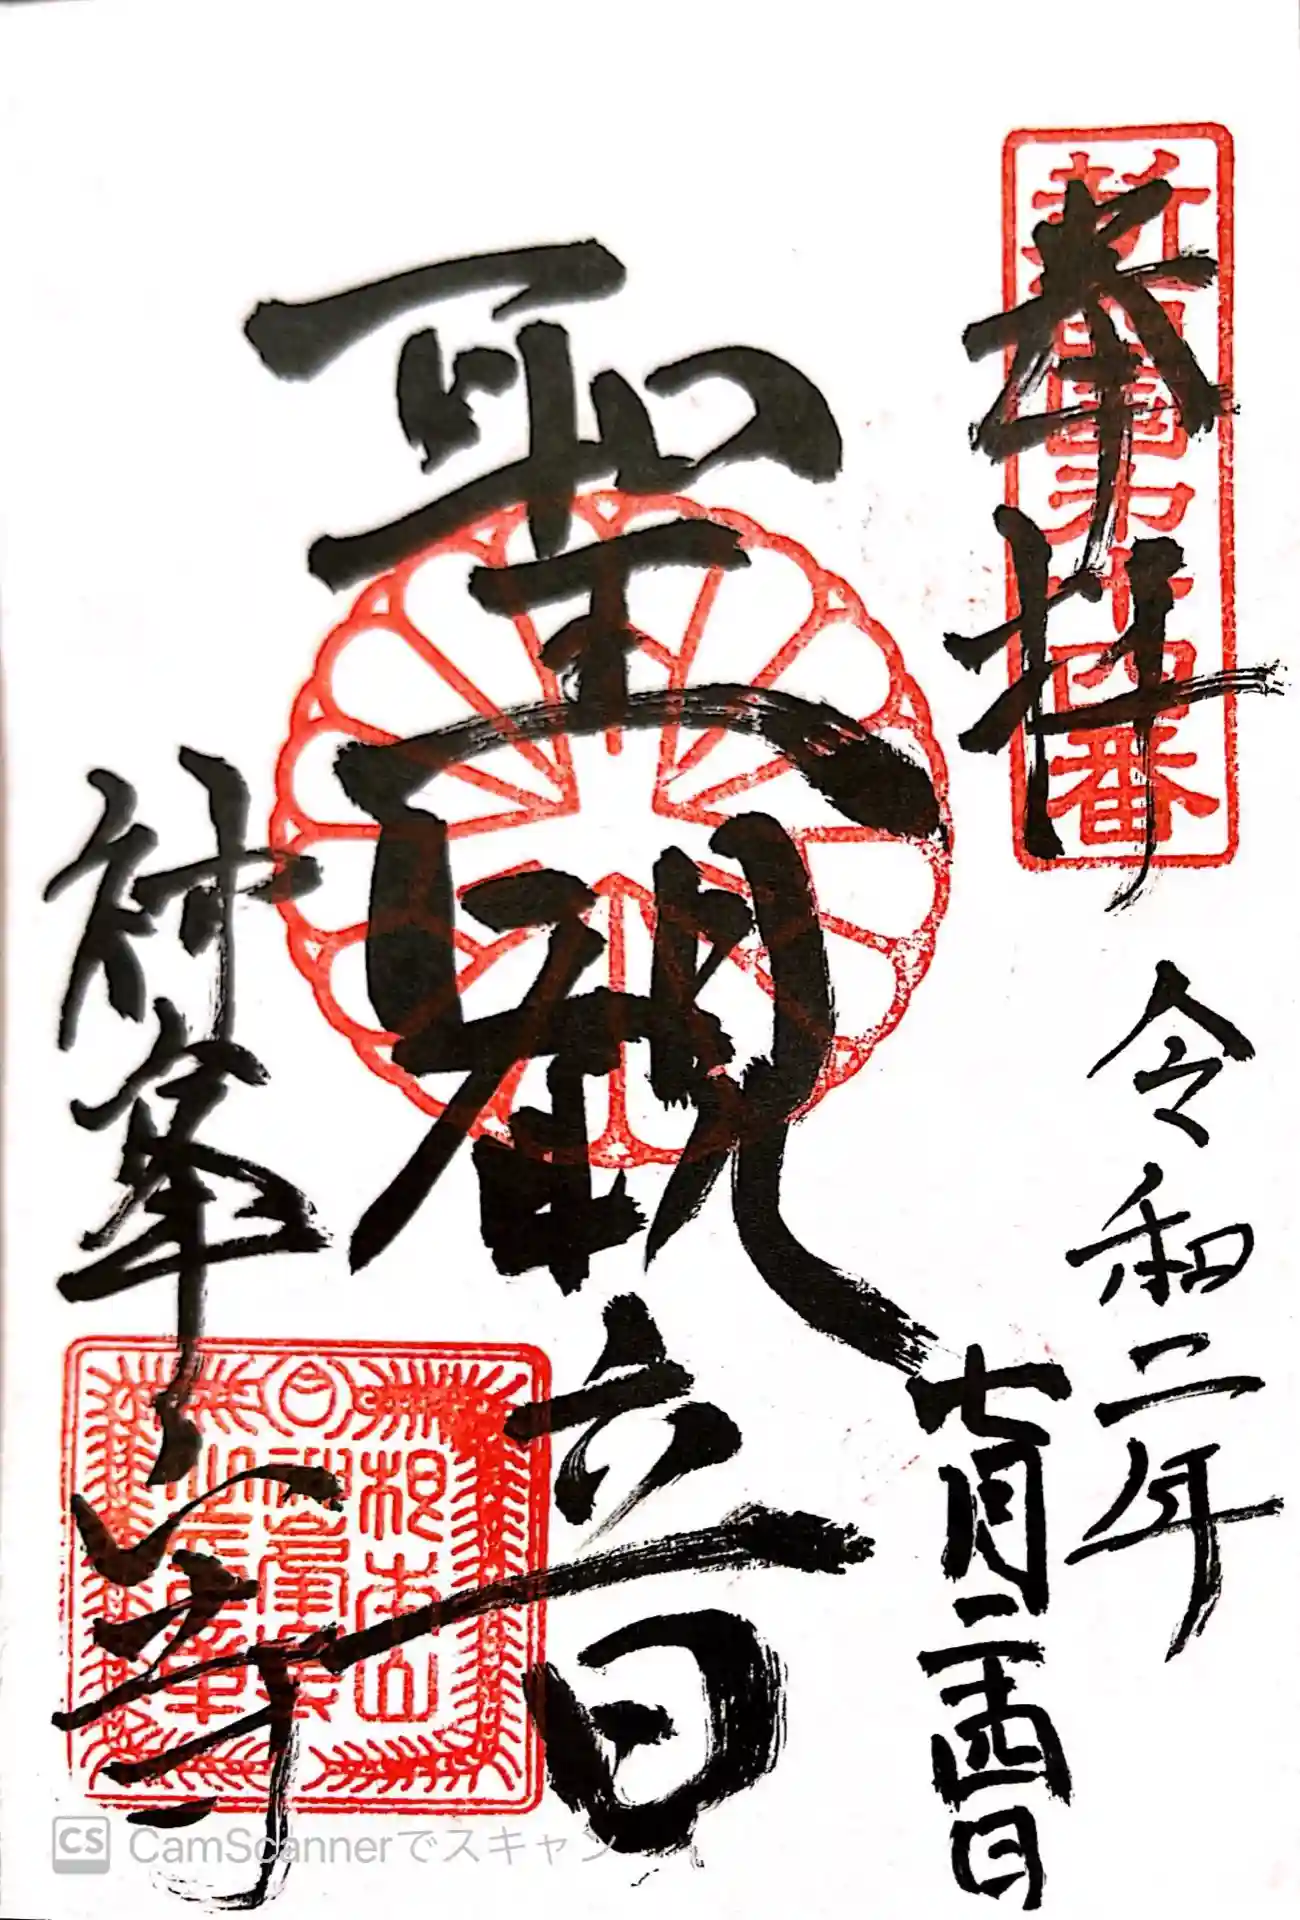 奉拝
新西国第十四番
令和二年
七月二十四日
聖観音
神峯山寺
根本山
神峯山
寺
CS CamScannerでスキャン